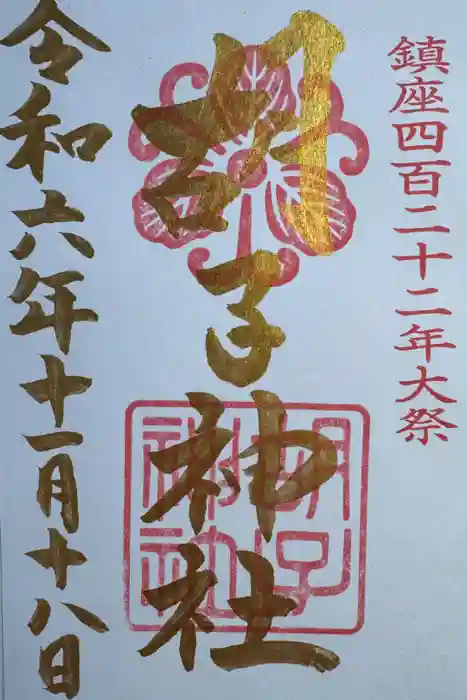 鎮座四百二十二年大祭
胡子神社
胡子
神社
令和六年十一月十八日